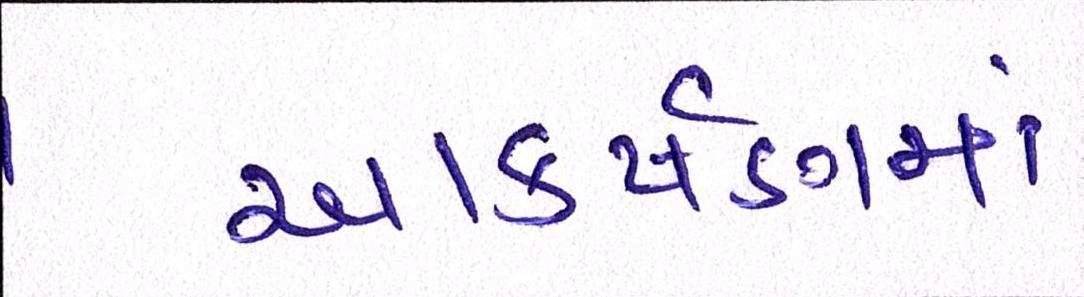 આકર્ષણમાં